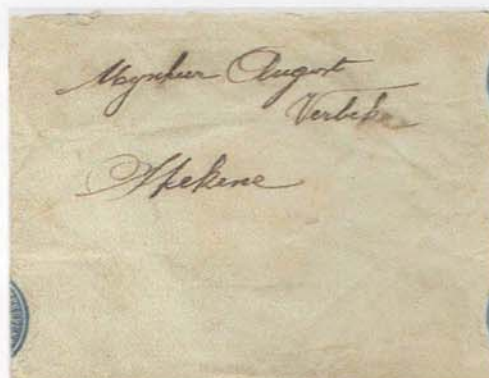 Mynheer August
Verbeke
Spekene